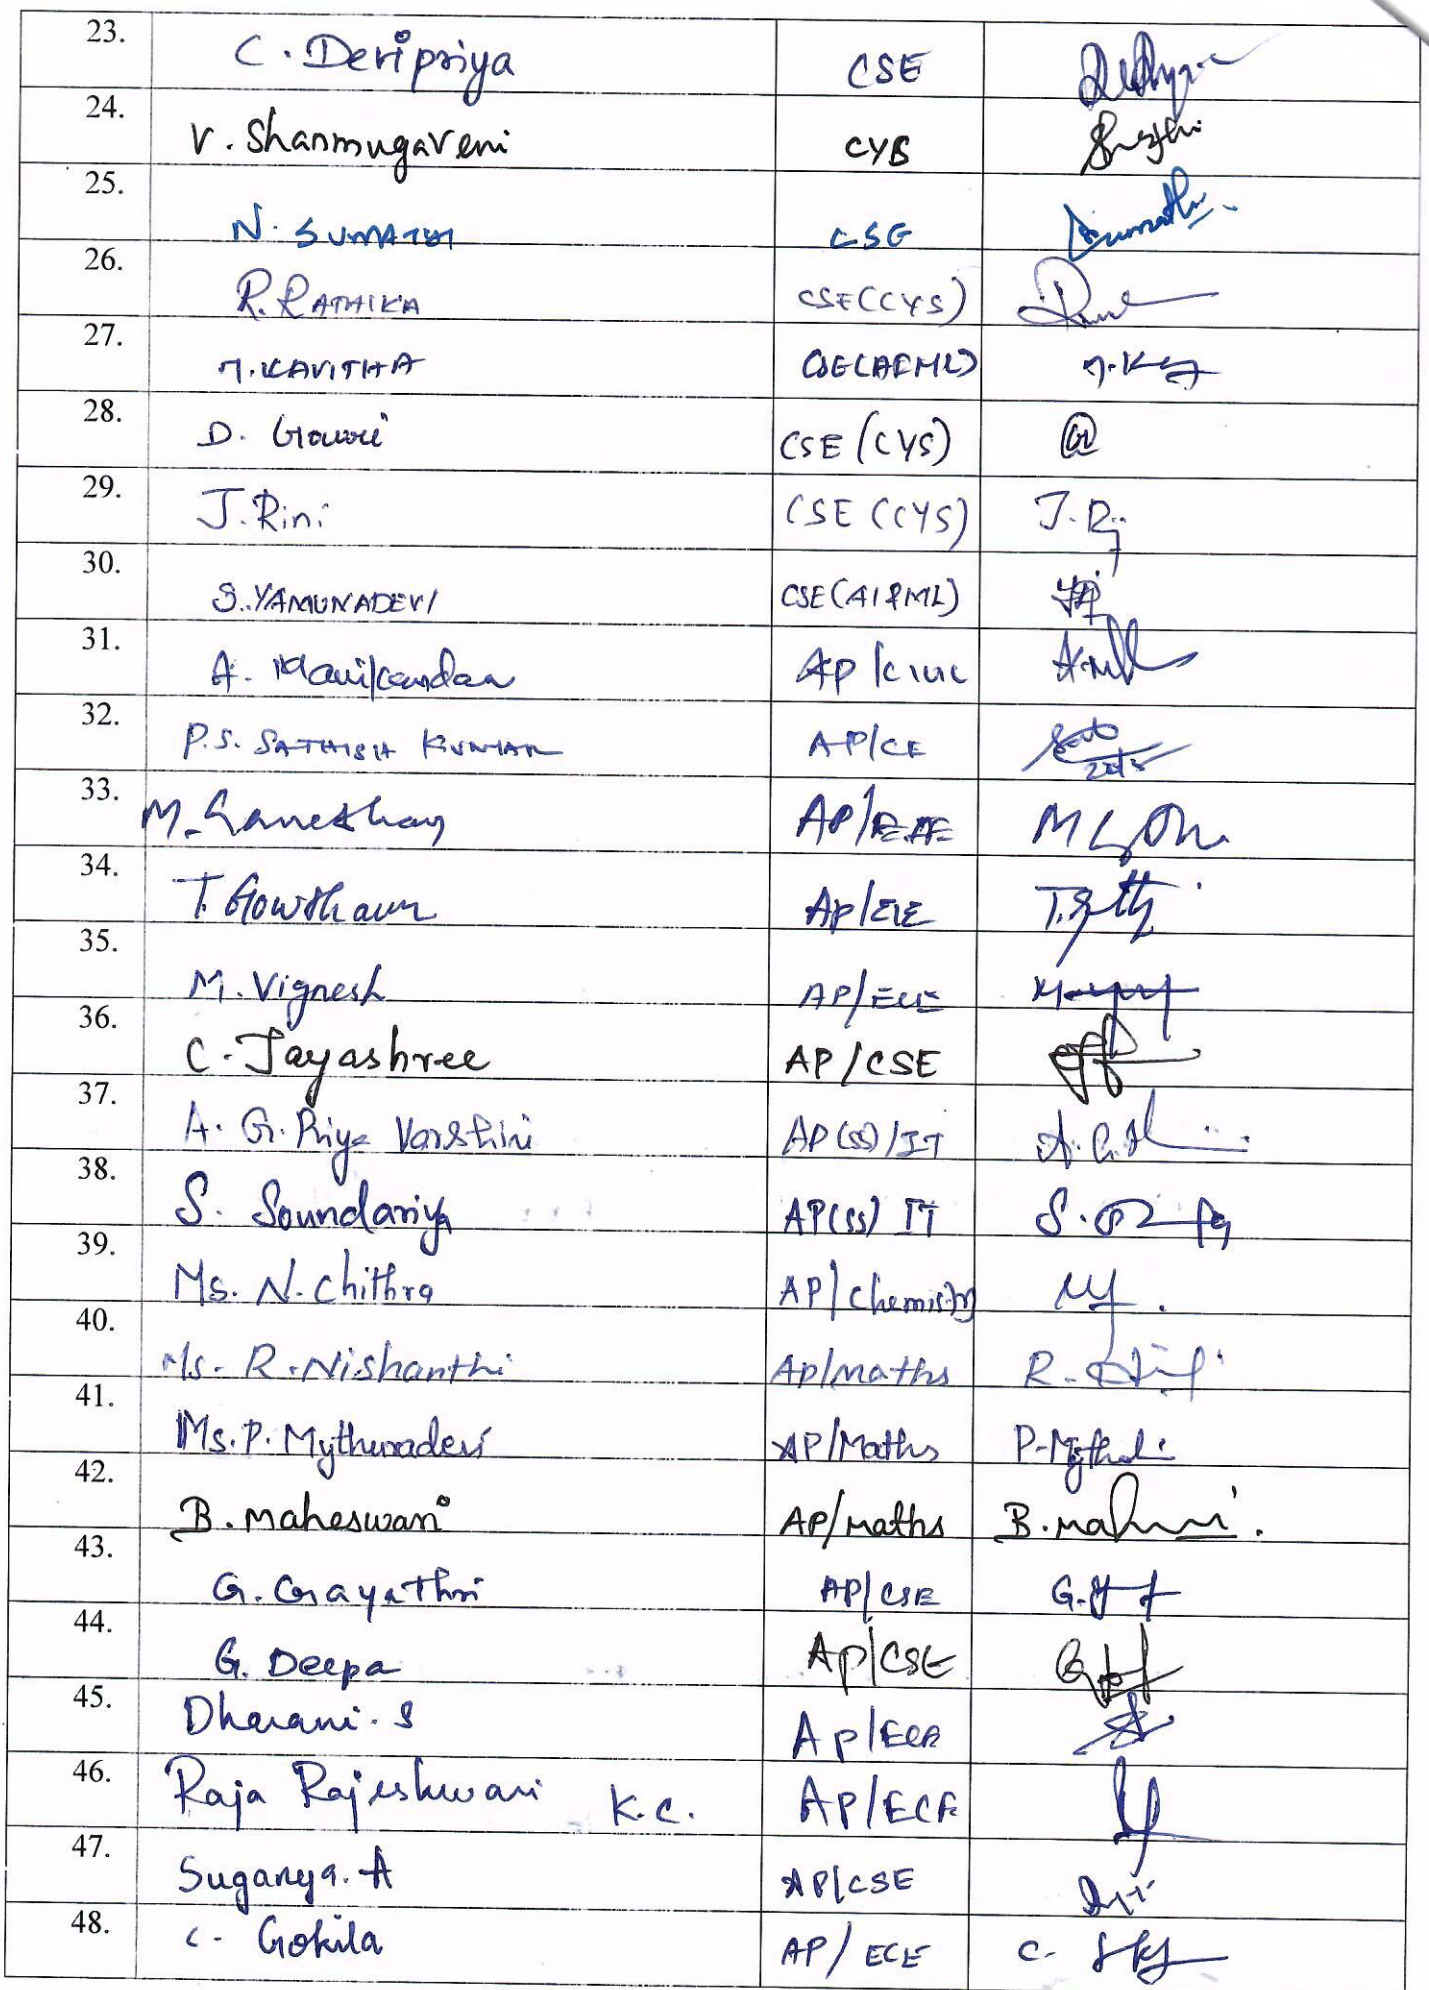 23. C. Devipriya CSE
24. V. Shanmugaveni CYB
25. N. SUMATHI CSE
26. R. RATHIKA CSE(CYS)
27. M. KAVITHA CSE(AIML) M.K
28. D. Gowri CSE (CYS)
29. J. Rini CSE (CYS) J. R
30. S. YAMUNADEVI CSE(AI&ML)
31. A. Manikandan AP/CIVIL
32. P.S. SATHISH KUMAR AP/CE
33. M. Ganeshan AP/EEE
34. T. Gowtham AP/EEE
35. M. Vignesh AP/ECE
36. C. Jayashree AP/CSE
37. A. G. Priya Varshini AP(SS)/IT
38. S. Soundariya AP(SS) IT
39. Ms. N. Chithra AP/Chemistry
40. Ms. R. Nishanthi AP/Maths R.
41. Ms. P. Mythuradevi AP/Maths
42. B. Maheswari AP/Maths
43. G. Gayathri AP/CSE
44. G. Deepa AP/CSE
45. Dharani. S AP/ECE
46. Raja Rajeshwari K.C. AP/ECE
47. Suganya. A AP/CSE
48. C. Gokila AP/ECE C.